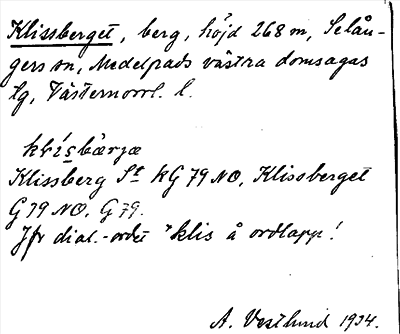 Klissberget, berg, höjd 268 m, Selån-
gers sn, Medelpads västra domsagas
tg, Västernorrl. l.
Klissberg St kG 79 NO, Klissberget
G 79 NO, G 79.
Jfr dial.-ordet klis å ordlapp!
A. Vestlund 1934.